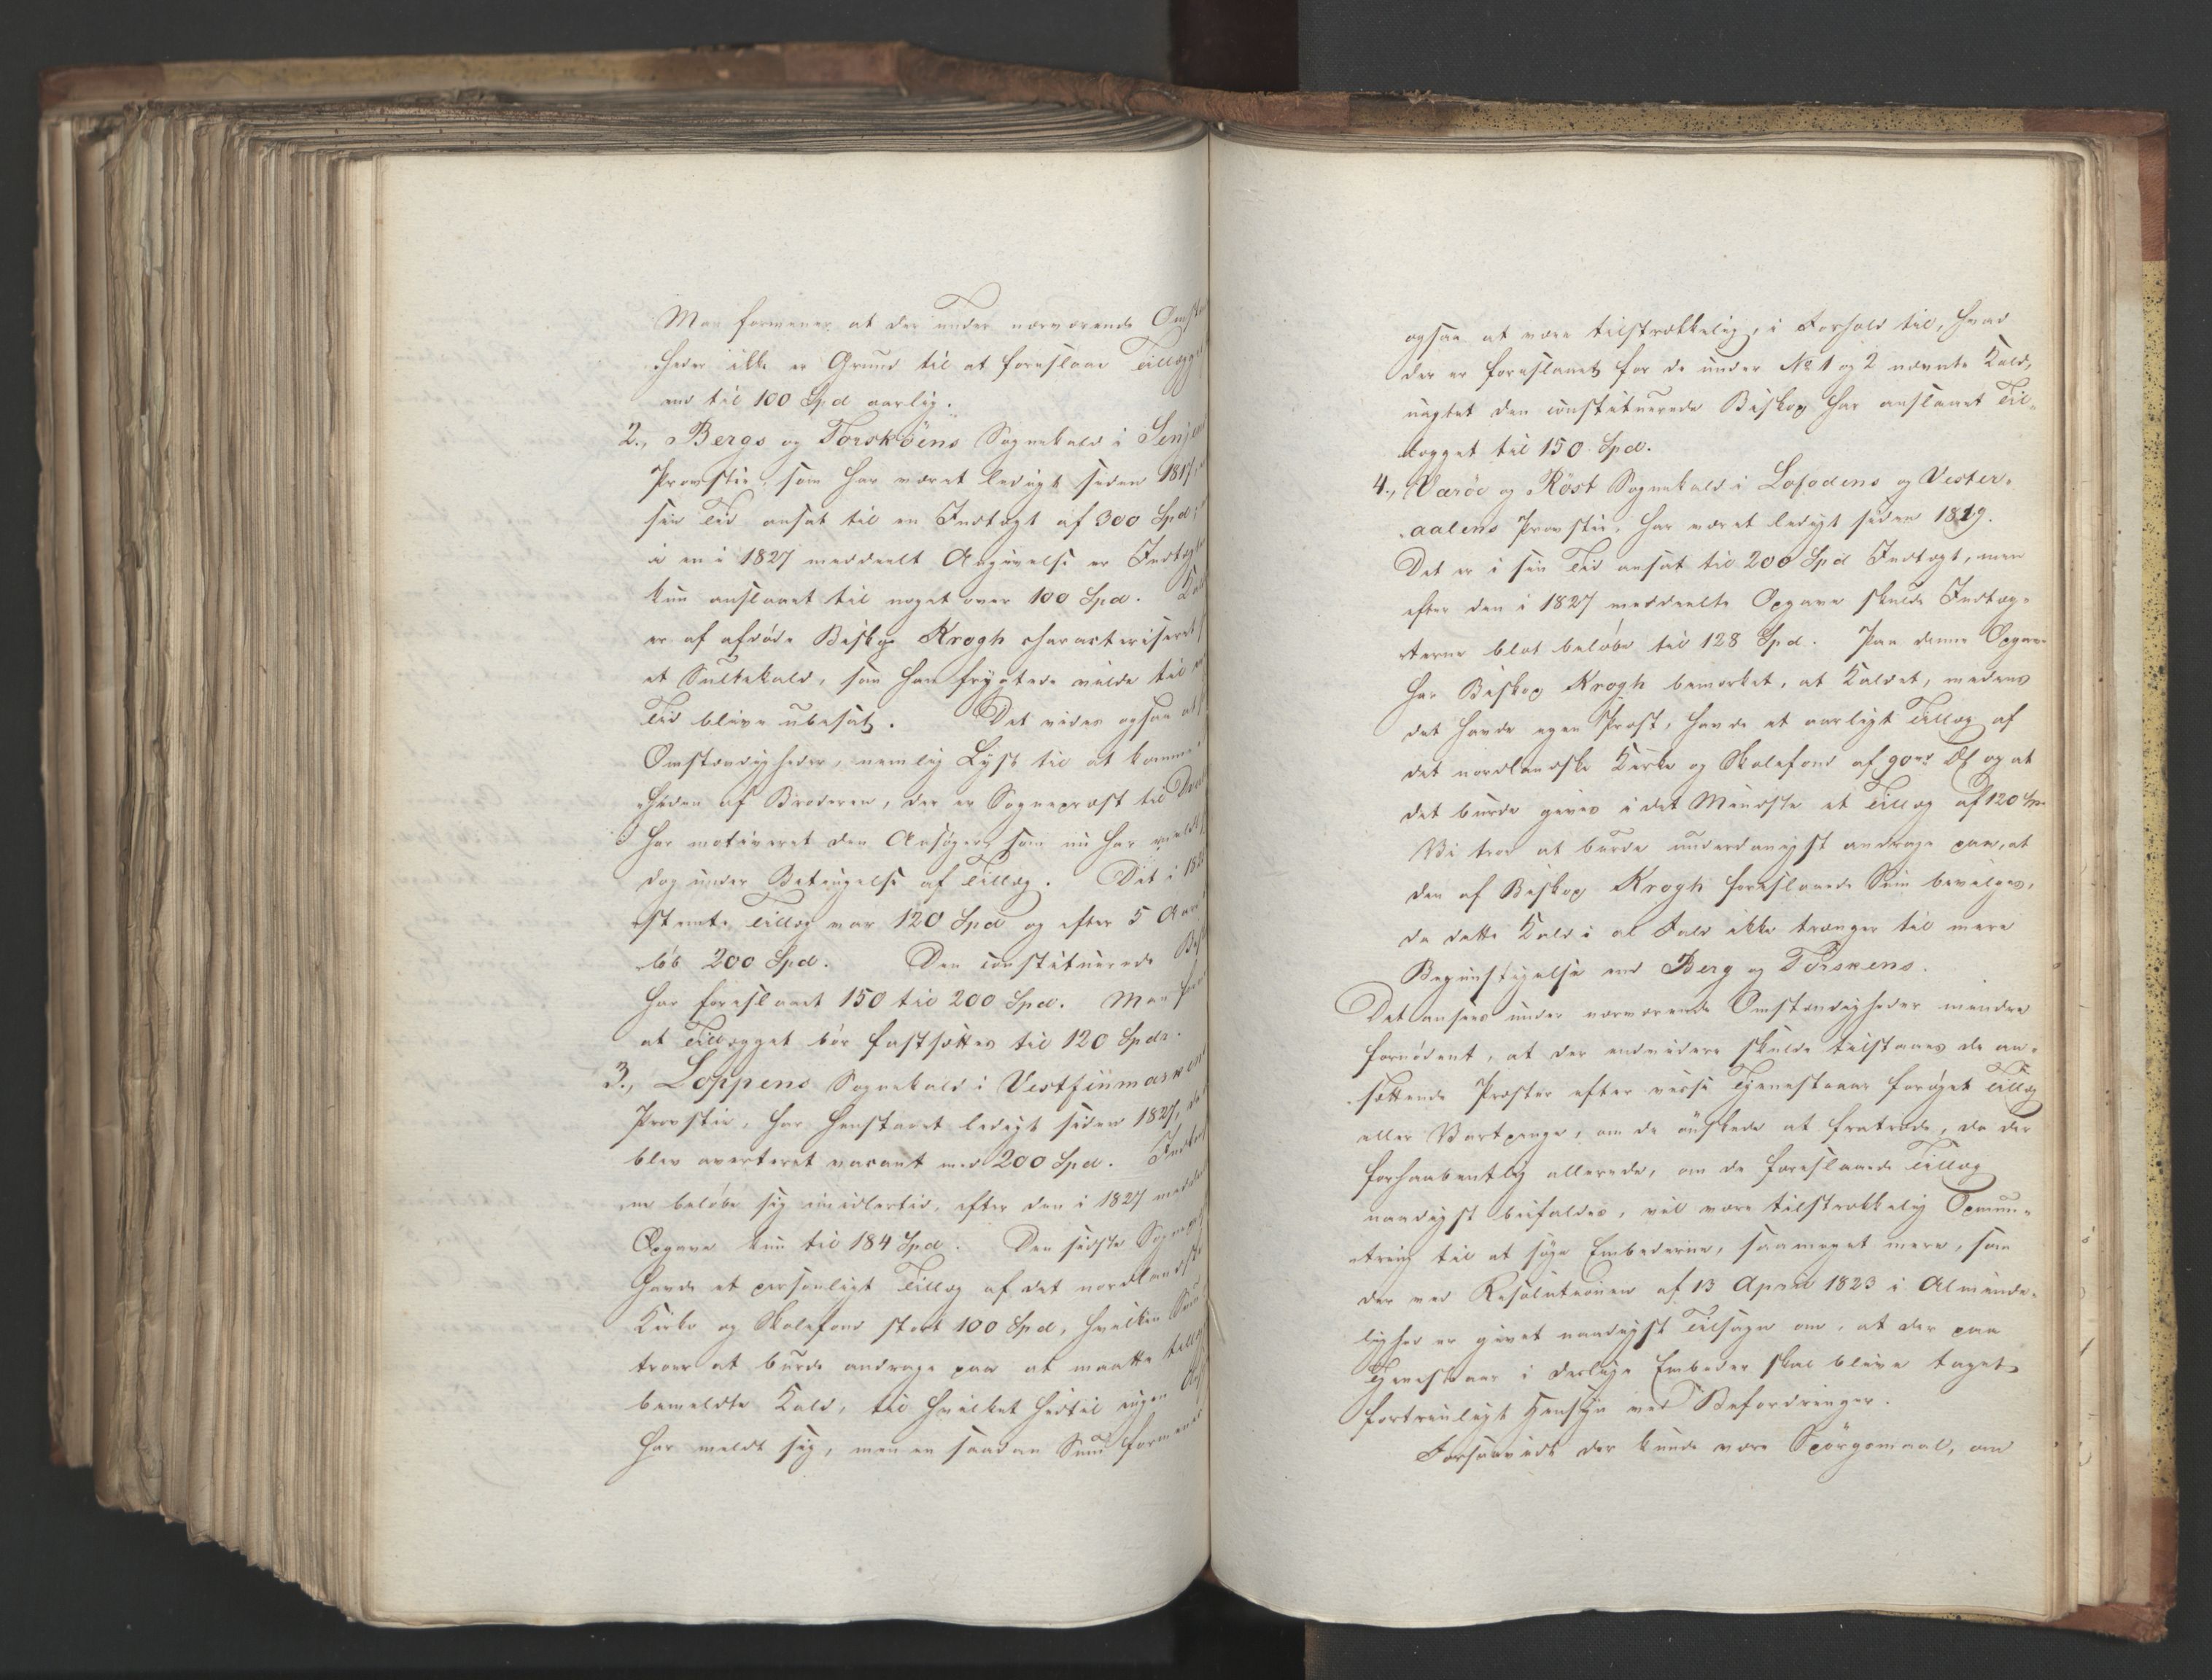 Man formener at der under nærværende
heder ikke er Grund til at foreslaae
end til 100 Spd aarlig.
2., Bergs og Torskôens Sognekald i
Provstie, som har været ledigt siden 1817,
sin Tid ansat til en Indtægt af 300 Spd;
i en i 1827 meddeelt Angivelse er
kun anslaaet til noget over 100 Spd.
er af afdøde Biskop Krogh characteriseret
et Sultekald, som han frygtede vilde til
Tid blive ubesat. Det vides ogsaa at
Omstændigheder, nemlig Lyst til at komme i
heden af Broderen, der er Sognepræst til
har motiveret den Ansøger, som nu har meldt
dog under Betingelse af Tillæg. Det i
stemte Tillæg var 120 Spd og efter 5 Aars
løb 200 Spd. Den constituerede
har foreslaaet 150 til 200 Spd. Man
at Tillægget bør fastsættes til 120 Spdr.
3., Loppens Sognekald i Vestfinmarkens
Provstie, har henstaaet ledigt siden 1827, da
blev averteret vacant med 200 Spd.
ne beløbe sig imidlertid, efter den i 1827
Opgave kun til 184 Spd. Den sidste
havde et personligt Tillæg af det nordlandske
Kirke og Skolefond stort 100 Spd, hvilken Sum
troer at burde andrage paa at maatte
bemeldte Kald, til hvilket hidtil ingen
har meldt sig, men en saadan Sum formenes
ogsaa at være tilstrækkelig, i Forhold til, hvad
der er foreslaaet for de under No 1 og 2 nævnte Kald,
uagtet den constituerede Biskop har anslaaet Til-
lægget til 150 Spd.
4., Værøe og Röst Sognekald i Lofodens og Vester-
aalens Provstie, har været ledigt siden 1819.
Det er i sin Tid ansat til 200 Spd Indtægt, men
efter den i 1827 meddeelte Opgave skulde Indtæg-
terne blot beløbe til 128 Spd. Paa denne Opgave
har Biskop Krogh bemærket, at Kaldet, medens
det havde egen Præst, havde et aarligt Tillæg af
det nordlandske Kirke og Skolefond af 90 og at
det burde gives i det Mindste et Tillæg af 120 Spd.
Vi troe at burde underdanigst andrage paa, at
den af Biskop Krogh foreslaaede Sum bevilges,
da dette Kald i al Fald ikke trænger til mere
Begunstigelse end Berg og Torskens.
Det ansees under nærværende Omstændigheder mindre
fornødent, at der endvidere skulde tilstaaes de an-
sættende Præster efter visse Tjenesteaar forøget Tillæg
eller Vartpenge, om de ønskede at fratræde, da der
forhaabentlig allerede, om de foreslaaede Tillæg
naadigst bifaldes, vil være tilstrækkelig Opmun-
tring til at søge Embederne, saameget mere, som
der ved Resolutionen af 13 April 1823 i Alminde-
lighed er givet naadigst Tilsagn om, at der paa
Tjenestaar i deslige Embeder skal blive taget
fortrinligt Hensyn ved Befordringer.
Forsaavidt der kunde være Spørgsmaal, om